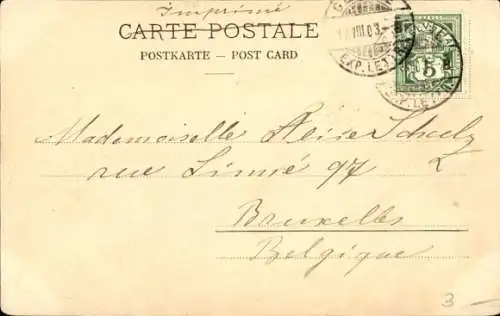 Imprimé
CARTE POSTALE
POSTKARTE – POST CARD
17.VIII.03.
EXP. LETTR.
5
Mademoiselle
rue Linné 97
Bruxelles
Belgique
3 –